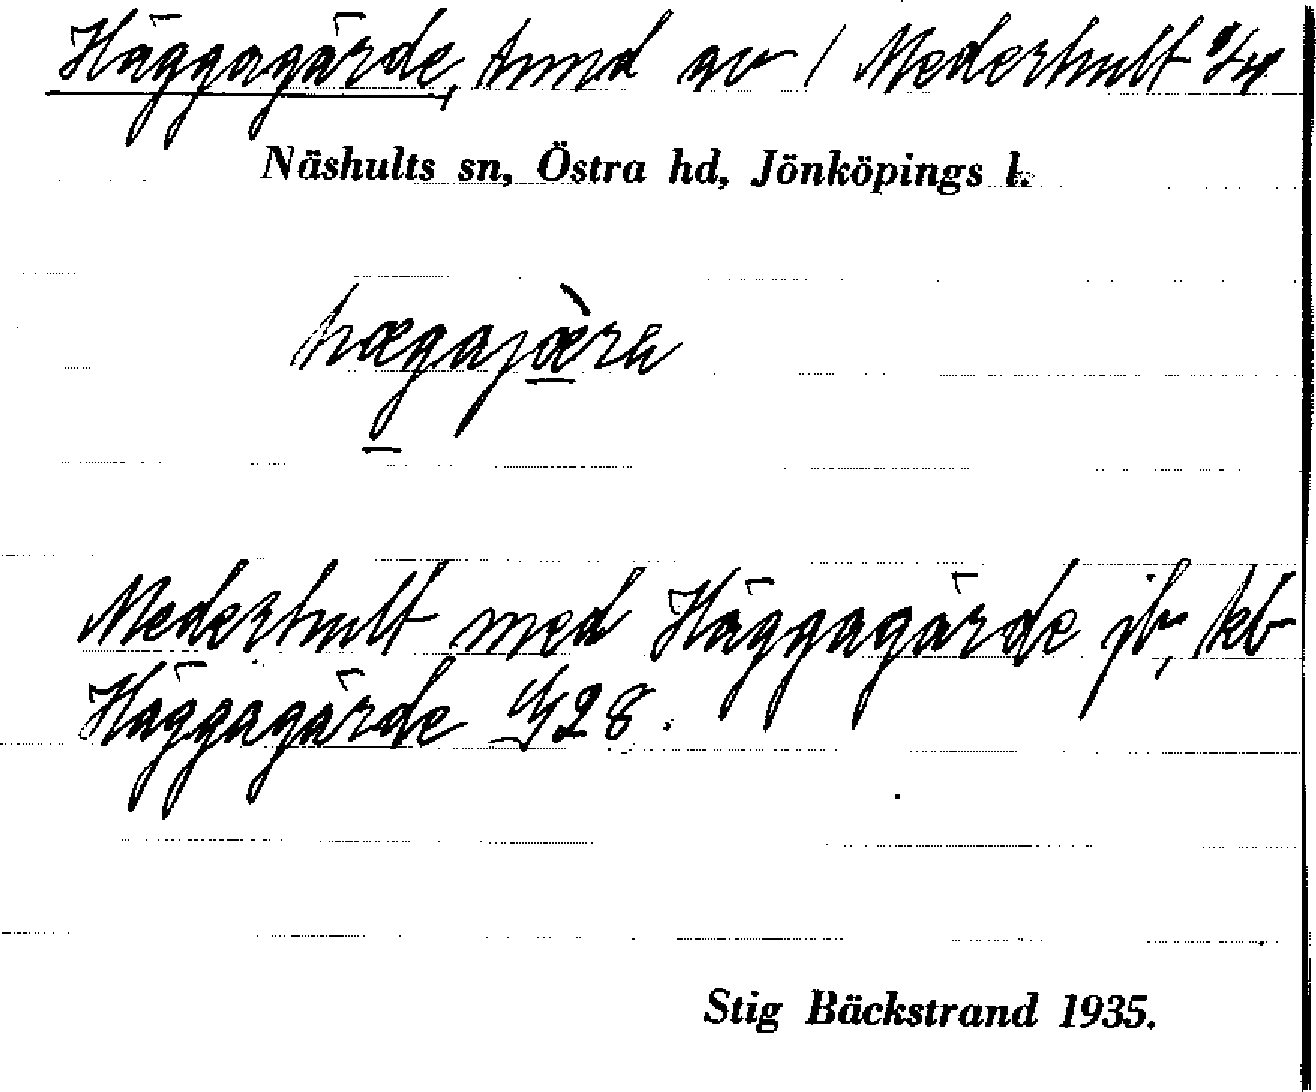 Häggagärde, tmd av 1 Mederhult
Näshults sn, Östra hd, Jönköpings l.
hægajæ̀ra
Mederhult med Häggagärde jb, kb
Häggagärde 28.
Stig Bäckstrand 1935.